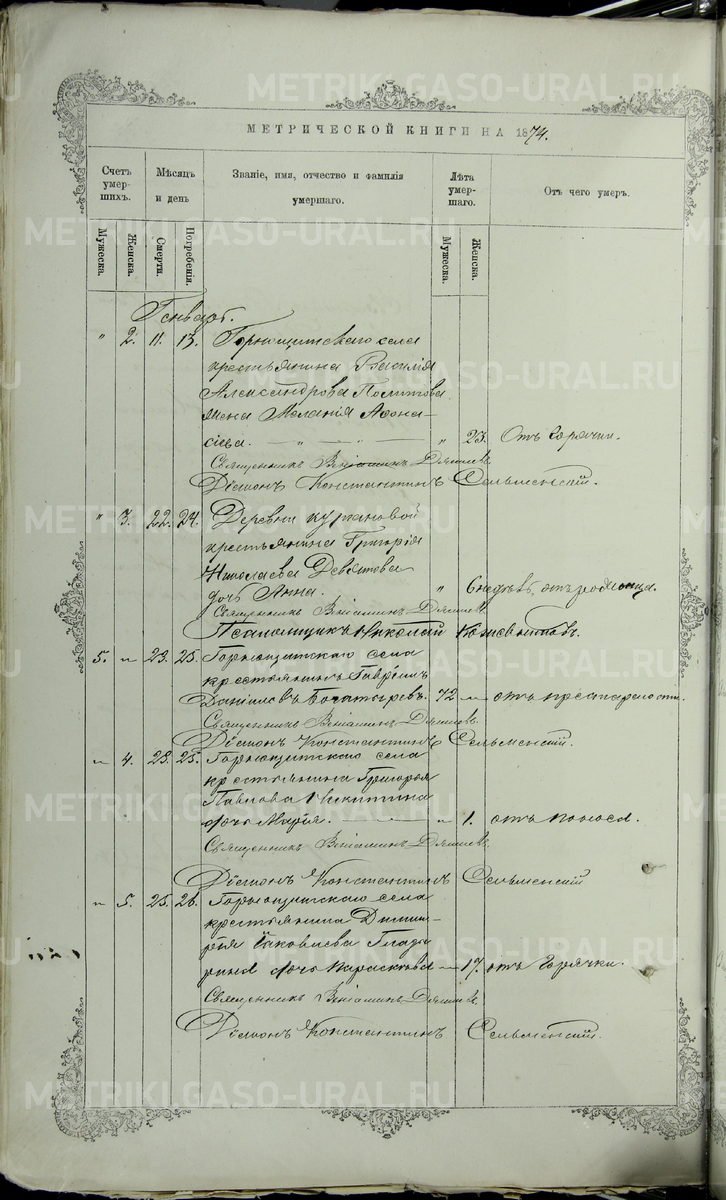 МЕТРИЧЕСКОЙ КНИГИ НА 1874.
Счетъ умер- шихъ.
Мѣсяцъ и день
Званіе, имя, отчество и фамилія умершаго.
Лѣта умер- шаго.
Отъ чего умеръ.
Мужеска.
Женска.
Смерти.
Погребенія.
Мужеска.
Женска.
Генварь.
" 2. 11. 13. Горнощитскаго села
крестьянина Василія
Александрова
жена Меланія Афона-
сіева. " 23. Отъ горячки.
Священникъ Веніаминъ
Діаконъ Константинъ Сельменскій.
" 3. 22. 24. Деревни Кургановой
крестьянина Григорія
Николаева Девятова
дочь Анна. " 6 недѣль, отъ родимца.
Священникъ Веніаминъ
Псаломщикъ Николай
5. " 23. 25. Горнощитскаго села
крестьянинъ Гавріилъ
Даніиловъ Богатыревъ. 72 " отъ престарелости.
Священникъ Веніаминъ
Діаконъ Константинъ Сельменскій.
" 4. 23. 25. Горнощитскаго села
крестьянина Григорья
Павлова Никитина
дочь Марія. " 1. отъ поноса.
Священникъ Веніаминъ
Діаконъ Константинъ Сельменскій
" 5. 25. 26. Горнощитскаго села
крестьянина Димит-
рія Іаковлева Глаза-
рина дочь Параскева 17. отъ горячки.
Священникъ Веніаминъ
Діаконъ Константинъ Сельменскій.
METRIKI.GASO-URAL.RU